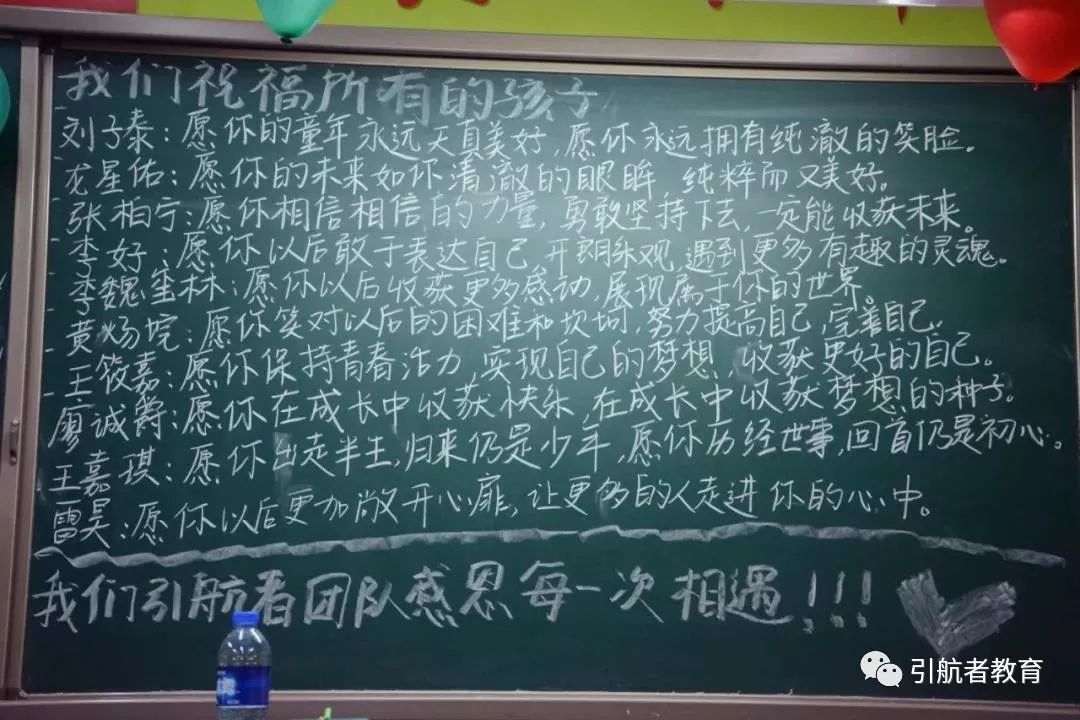 我们祝福所有的孩子
刘子泰：愿你的童年永远天真美好，愿你永远拥有纯澈的笑脸。
龙星佑：愿你的未来如你清澈的眼眸，纯粹而又美好。
张柏宁：愿你相信相信的力量，勇敢坚持下去，一定能收获未来。
李好：愿你以后敢于表达自己，开朗乐观，遇到更多有趣的灵魂。
李魏笙林：愿你以后收获更多感动，展现属于你的世界。
黄炀垸：愿你笑对以后的困难和坎坷，努力提高自己，完善自己。
王筱嘉：愿你保持青春活力，实现自己的梦想，收获更好的自己。
廖诚爵：愿你在成长中收获快乐，在成长中收获梦想的种子。
王嘉琪：愿你出走半生，归来仍是少年，愿你历经世事，回首仍是初心。
雷昊：愿你以后更加敞开心扉，让更多的人走进你的心中。
我们引航者团队感恩每一次相遇！！！
引航者教育